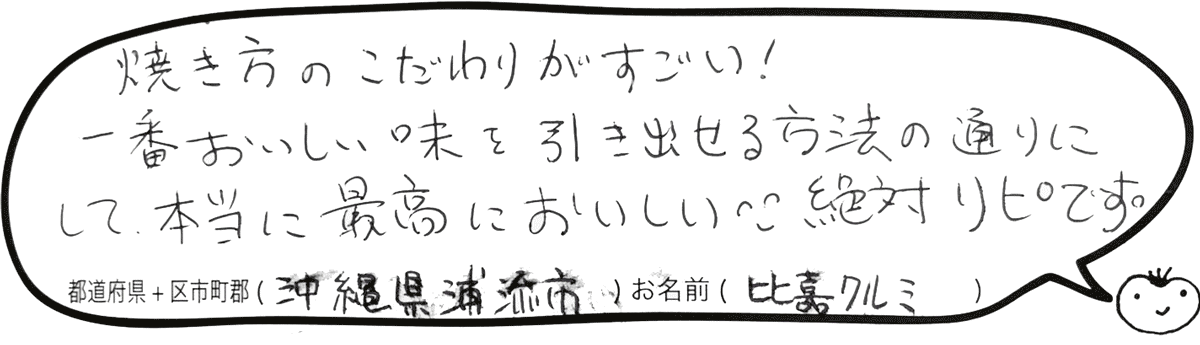 焼き方のこだわりがすごい!
一番おいしい味を引き出せる方法の通りに
して、本当に最高においしい〜〜絶対リピです。
都道府県+区市町郡(沖縄県浦流市)お名前(比嘉クルミ)